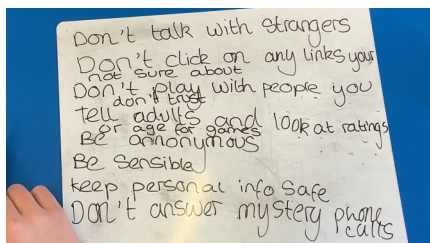 Don't talk with strangers
Don't click on any links your
not sure about
Don't play with people you
don't trust
tell adults and look at ratings
or age for games
Be annonymous
Be Sensible
keep personal info safe
Don't answer mystery phone
calls